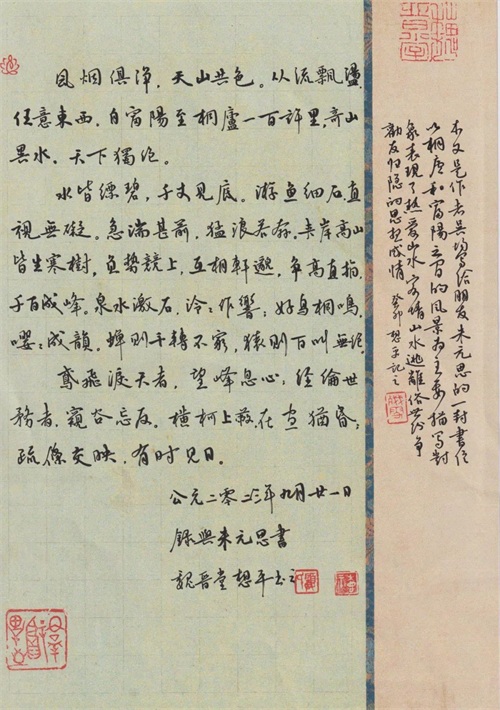 风烟俱淨，天山共色。从流飄盪，
任意東西，自富陽至桐廬一百許里，奇山
異水，天下獨绝。
水皆缥碧，千丈見底。游鱼细石，直
視無礙。急湍甚前，猛浪若奔。夹岸高山
皆生寒樹，負勢競上，互相軒邈，争高直指，
千百成峰。泉水激石，泠：作響；好鳥相鳴，
嚶：成韻，蟬则千转不窮，猿则百叫無绝
鳶飛淚天者，望峰息心；经倫世
務者，窺谷忘反。横柯上蔽，在昼猶昏；
疏條交映，有时见日。
公元二零二三年九月廿一日
錄與朱元思書
魏晉堂想平书之
本文是作者吴均写给朋友朱元思的一封書信
以桐庐和富陽之间的風景为主要描写对
象表现了热爱山水寄情山水逃離俗世纷争
勸友归隐的思想感情 癸卯 想平记之